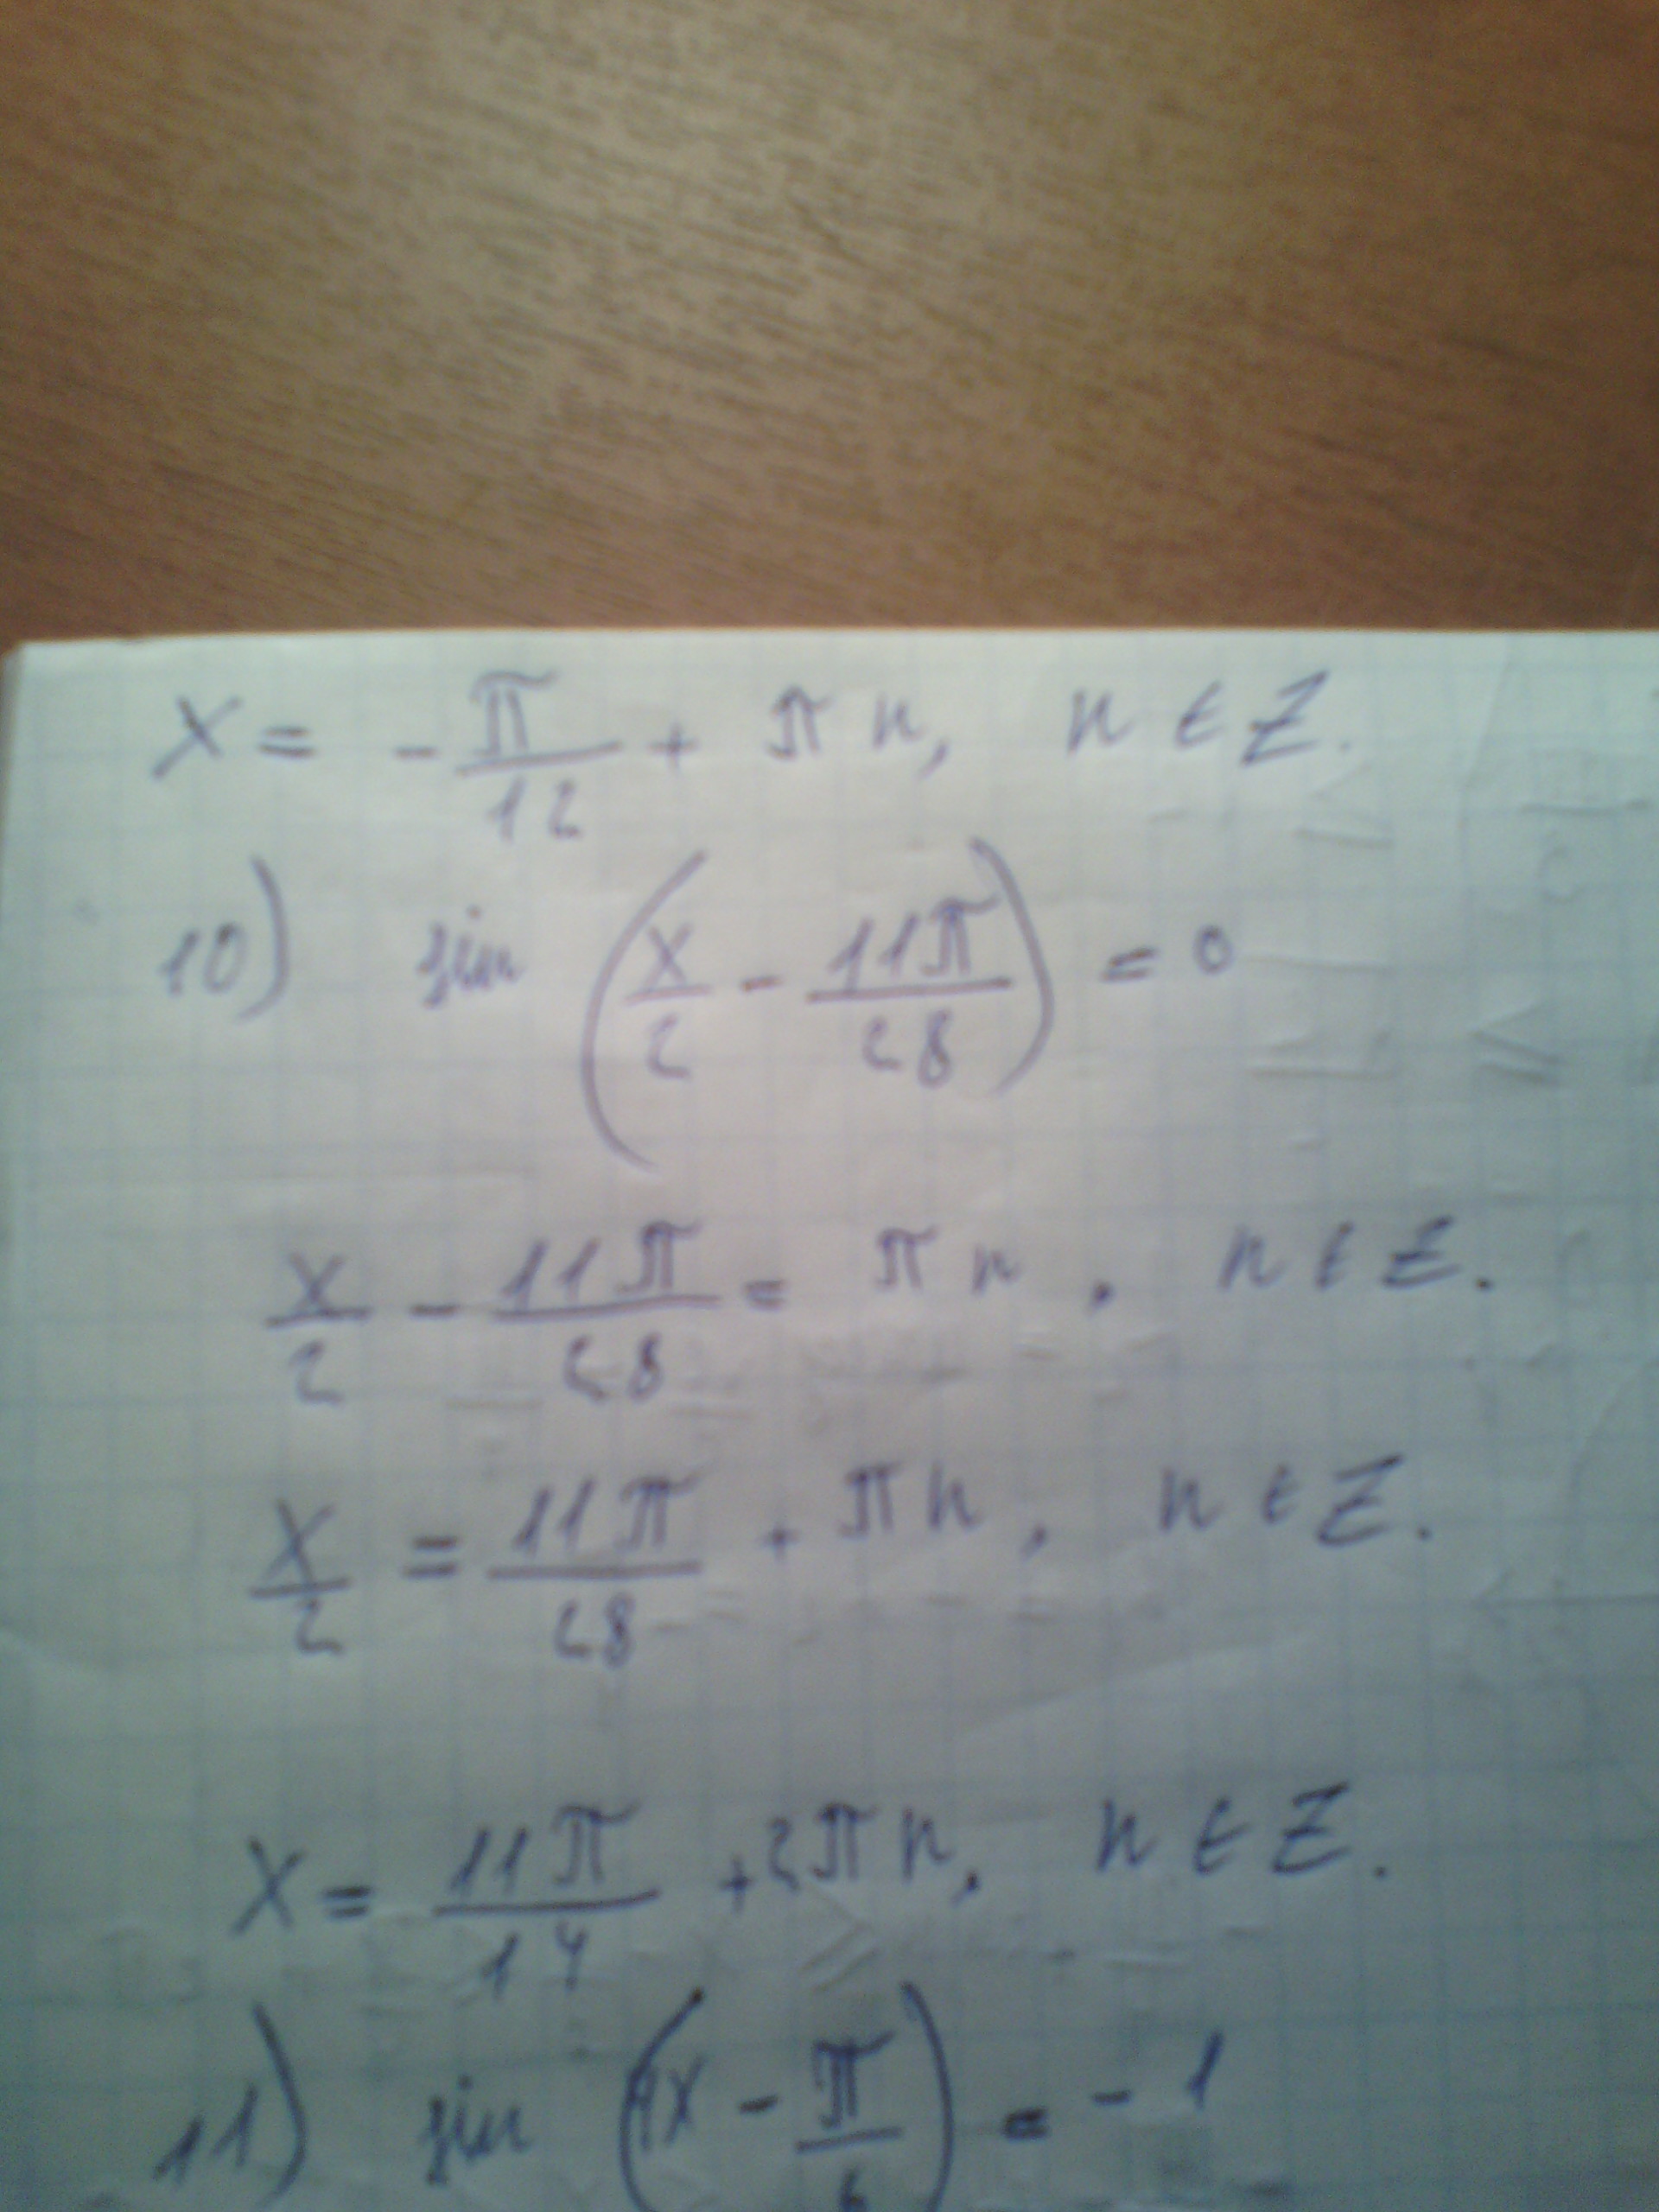 x = - π/12 + πn, n ∈ Z.
10) sin (x/2 - 11π/28) = 0
x/2 - 11π/28 = πn, n ∈ Z.
x/2 = 11π/28 + πn, n ∈ Z.
x = 11π/14 + 2πn, n ∈ Z.
11) sin (4x - π/6) = - 1